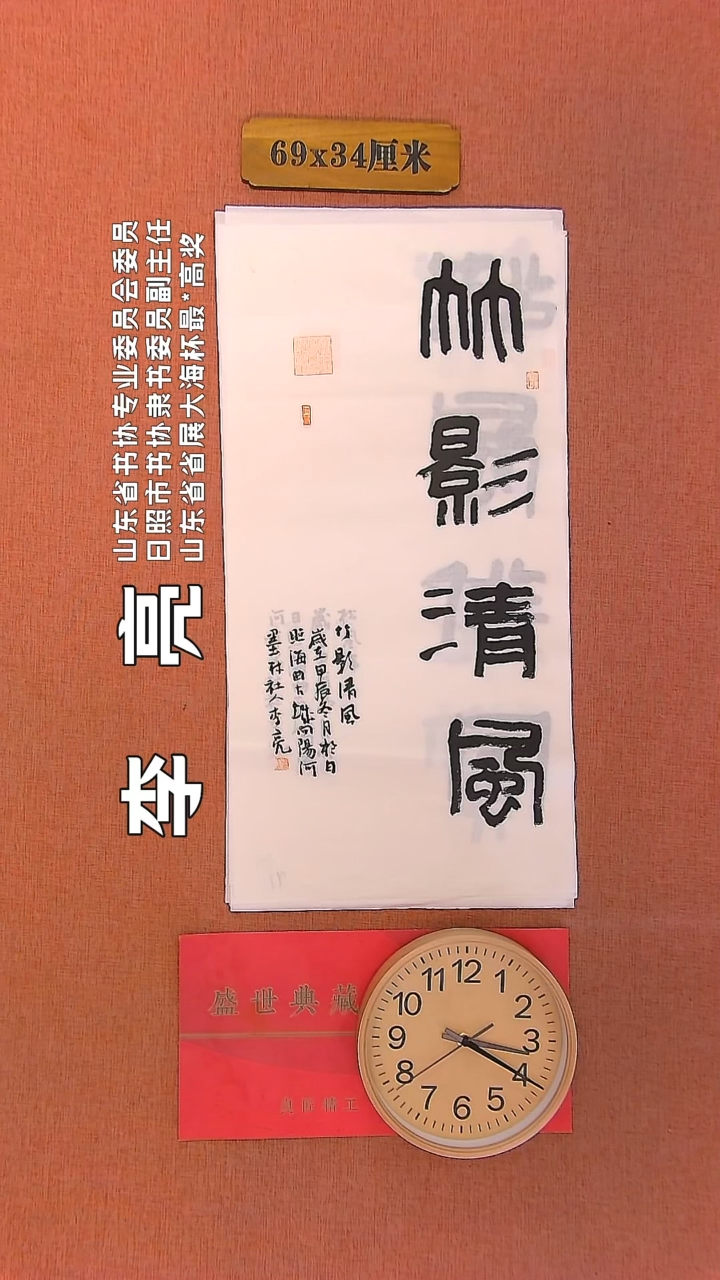 69x34厘米
山东省书协专业委员会委员
日照市书协隶书委员副主任
山东省省展大海杯最*高奖
李亮
竹影清风
竹影清风
歲在甲辰冬月於日
照海曲古城向陽河
墨林社人李亮
盛世典藏
12
1
2
3
4
5
6
7
8
9
10
11